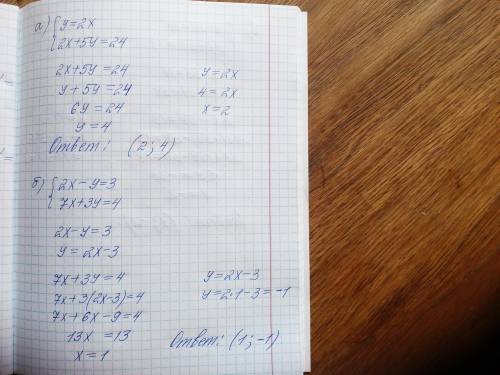 а) { y=2x
2x+5y=24
2x+5y=24 y=2x
y+5y=24 4=2x
6y=24 x=2
y=4
Ответ: (2; 4)
б) { 2x-y=3
7x+3y=4
2x-y=3
y=2x-3
7x+3y=4 y=2x-3
7x+3(2x-3)=4 y=2·1-3=-1
7x+6x-9=4
13x=13 Ответ: (1; -1)
x=1